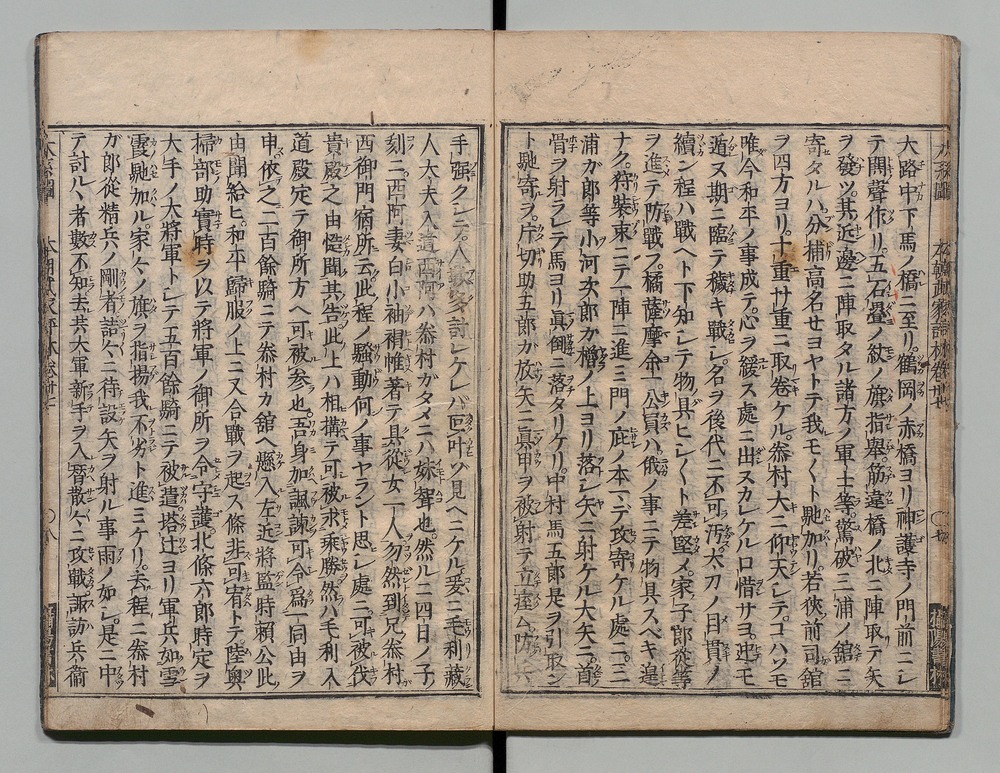 大路中下馬ノ橋ニ至リ鶴岡ノ赤橋ヨリ神護寺ノ門前ニシ
テ鬨聲作リ五石畳ノ紋ノ旗指舉筋違橋ノ北ニ陣取テ矢
ヲ發ツ其近邊ニ陣取タル諸方ノ軍士等驚破三浦ノ館ニ
寄タルハ分捕高名セヨヤトテ我モ〱ト馳加リ若狹前司舘
ヲ四方ヨリ十重廿重ニ取卷ケル泰村大ニ仰天シテコハソモ
唯今和平ノ事成テ心ヲ緩ス處ニ出スカシケルロ惜サヨ迚モ
遁ヌ期ニ臨テ穢キ戰シ名ヲ後代ニ不可汚太刀ノ目貫ノ
續ン程ハ戰ヘト下知シテ物具ヒシ〱ト差堅メ家子郎從等
ヲ進テ防戰フ橘薩摩余一公員ハ俄ノ事ニテ物具スベキ遑
ナク狩裝束ニテ一陣ニ進ミ門ノ庇ノ本マデ攻寄ケル處ニ三
浦ガ郎等小河次郎カ櫓ノ上ヨリ落シ矢ニ射ケル大矢ニ首
骨ヲ射ラレテ馬ヨリ眞倒ニ落タリケリ中村馬五郎是ヲ引取ン
ト馳寄ヲ片切助五郎が放矢ニ眞甲ヲ被射テ立
手強クシテ人數多討レケレバ叵叶ゾ見ヘニケル爰ニ毛利藏
人大夫入道西阿ハ泰村ガタメニハ妹聟也然ルニ四日ノ子ノ
刻ニ西阿ノ妻白小袖褶帷著テ具從女一人勿然到兄泰村
西御門宿所云此程ノ騷動何ノ事ヤラント思シ處ニ可被伐
貴殿之由慥聞其告此上ハ相搆テ可被求乘勝然ハ毛利入
道殿定テ御所方ヘ可被參也吾身加諷諫可令爲一同由ヲ
申依之二百餘騎ニテ泰村カ舘ヘ懸入左近將監時頼公此
由聞給ヒ和平歸服ノ上ニ又合戰ヲ起ス條非可宥トテ陸奥
掃部助實時ヲ以テ將軍ノ御所ヲ令守護北條六郎時定ヲ
大手ノ大將軍トシテ五百餘騎ニテ被遣塔辻ヨリ軍兵如雲
霞馳加ル家々ノ旗ヲ指揚我不劣ト進ミケリ去程ニ泰村
ガ郎從精兵ノ剛者詰々ニ待設矢ヲ射ル事雨ノ如シ是ニ中
テ討ルヽ者數不知去共大軍新手ヲ入替散々ニ攻戰諏訪兵衞